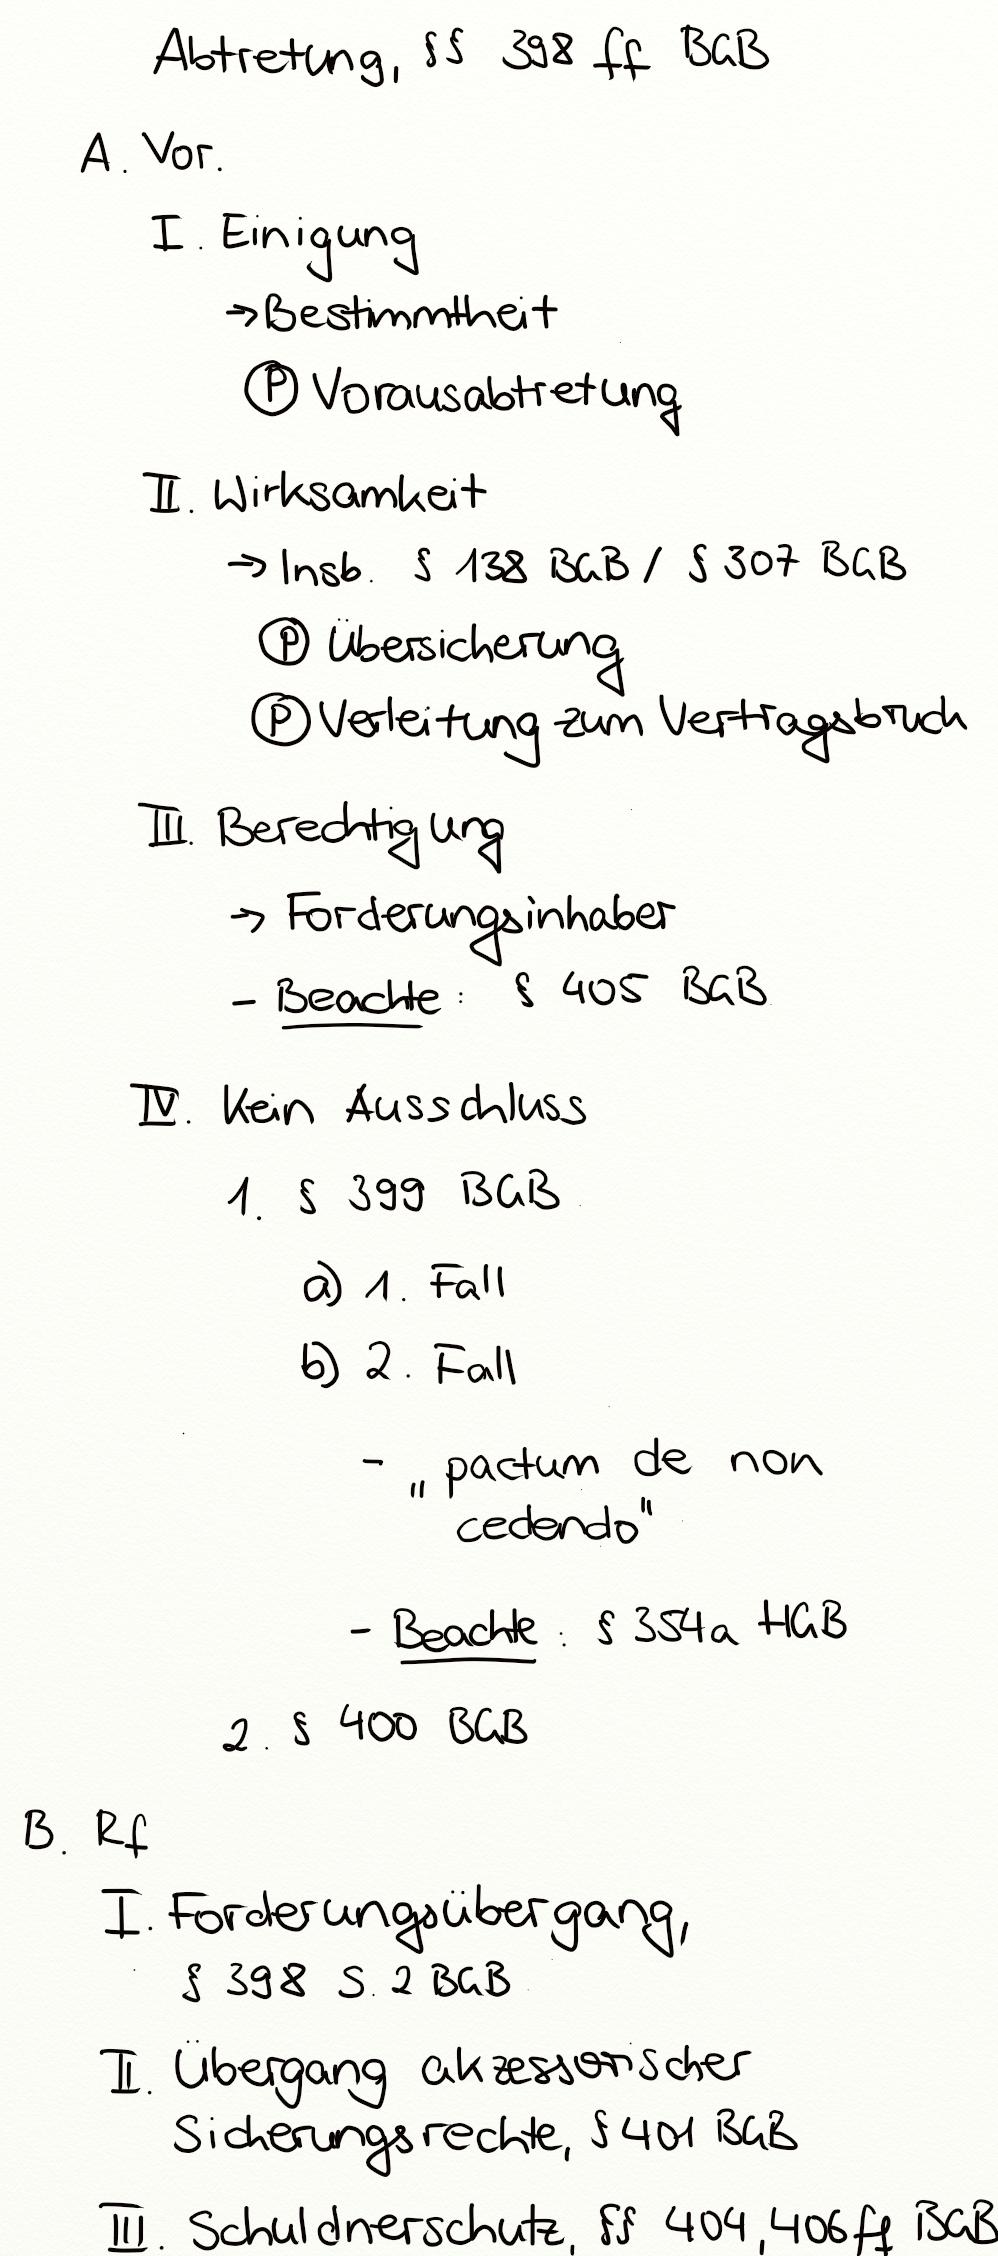 Abtretung, §§ 398 ff BGB
A. Vor.
I. Einigung
→ Bestimmtheit
Ⓟ Vorausabtretung
II. Wirksamkeit
→ Insb. § 138 BGB / § 307 BGB
Ⓟ Übersicherung
Ⓟ Verleitung zum Vertragsbruch
III. Berechtigung
→ Forderungsinhaber
- Beachte: § 405 BGB
IV. Kein Ausschluss
1. § 399 BGB
a) 1. Fall
b) 2. Fall
- „pactum de non
cedendo"
- Beachte: § 354a HGB
2. § 400 BGB
B. Rf
I. Forderungsübergang,
§ 398 S. 2 BGB
II. Übergang akzessorischer
Sicherungsrechte, § 401 BGB
III. Schuldnerschutz, §§ 404, 406 ff BGB